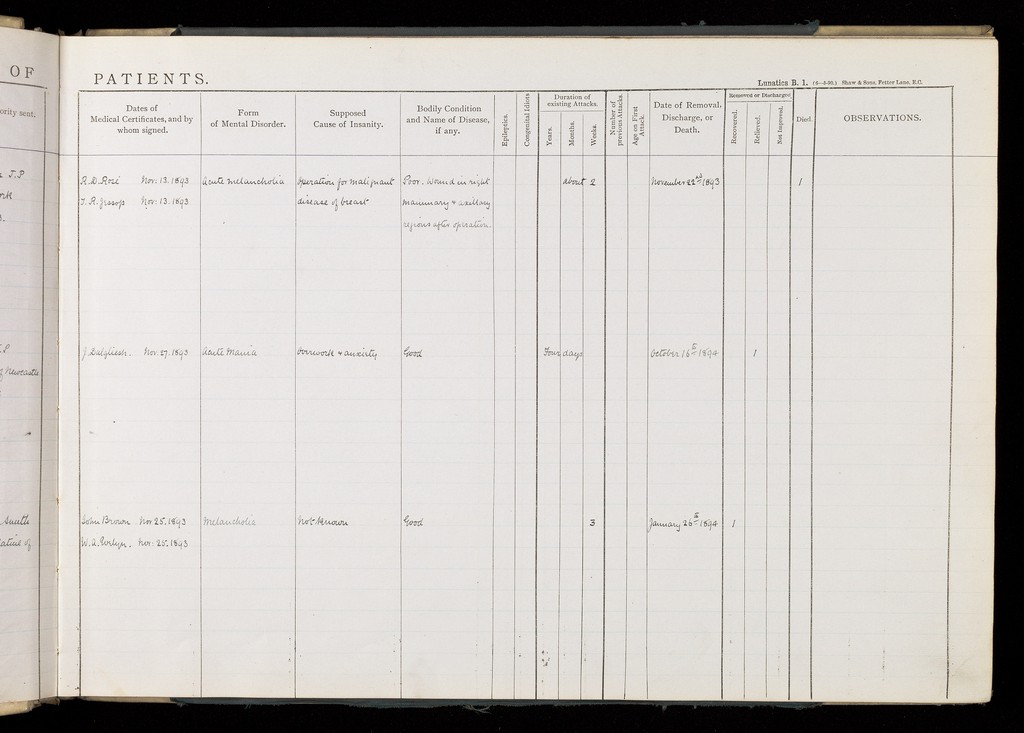 OF
PATIENTS.
Lunatics B. 1. (6—5-90.) Shaw & Sons, Fetter Lane, E.C.
ority sent.
Dates of
Medical Certificates, and by
whom signed.
Form
of Mental Disorder.
Supposed
Cause of Insanity.
Bodily Condition
and Name of Disease,
if any.
Epileptics.
Congenital Idiots
Duration of
existing Attacks.
Years.
Months.
Weeks.
Number of
previous Attacks.
Age on First
Attack.
Date of Removal,
Discharge, or
Death.
Removed or Discharged.
Recovered.
Relieved.
Not Improved.
Died.
OBSERVATIONS.
J.P
R.D. Rosé Nov: 13. 1893 Acute melancholia Operation for malignant Poor. Wound in right About 2 November 22nd 1893 1
T.R. Jessop Nov: 13. 1893 disease of breast mammary & axillary
regions after operation.
J. Dalgliesh. Nov. 27. 1893 Acute Mania Overwork & anxiety Good Four days October 16th 1894 1
of Newcastle
John Brown Nov 25. 1893 Melancholia Not Known Good 3 January 26th 1894 1
W.A. Evelyn. Nov: 25. 1893